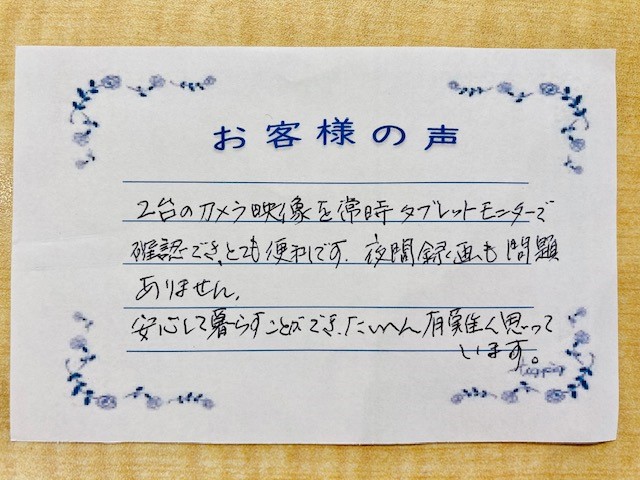 お客様の声
2台のカメラ映像を常時タブレットモニターで
確認でき、とても便利です。夜間録画も問題
ありません。
安心して暮らすことができ、たいへん有難く思って
います。